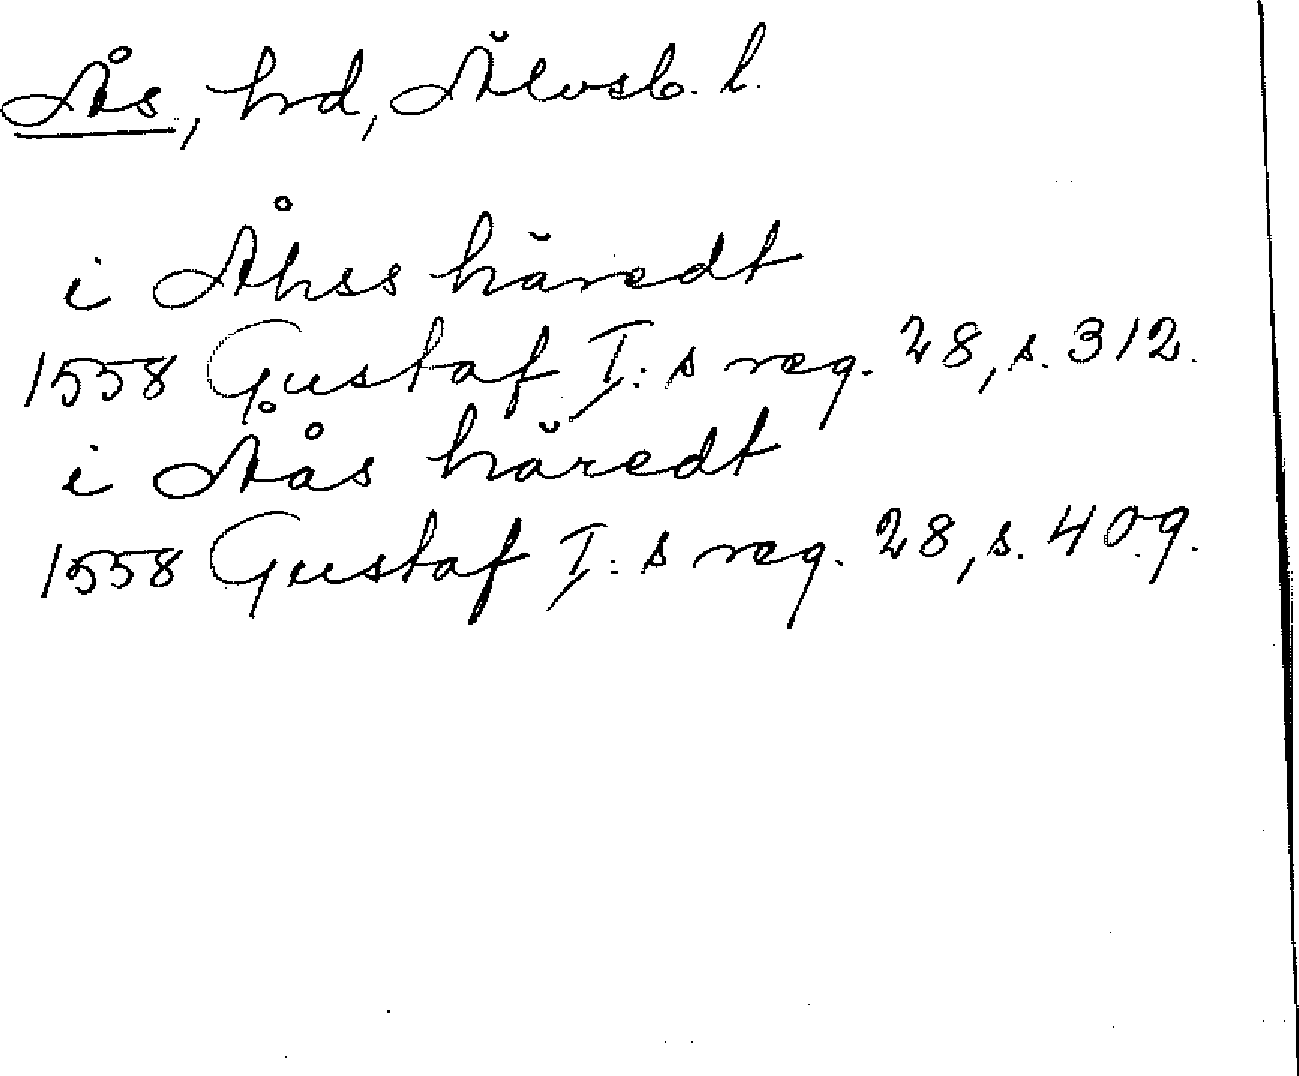 Ås, hrd, Älvsb. l.
i Åhss häredt
1558 Gustaf I:s reg. 28, s. 312.
i Åås häredt
1558 Gustaf I:s reg. 28, s. 409.